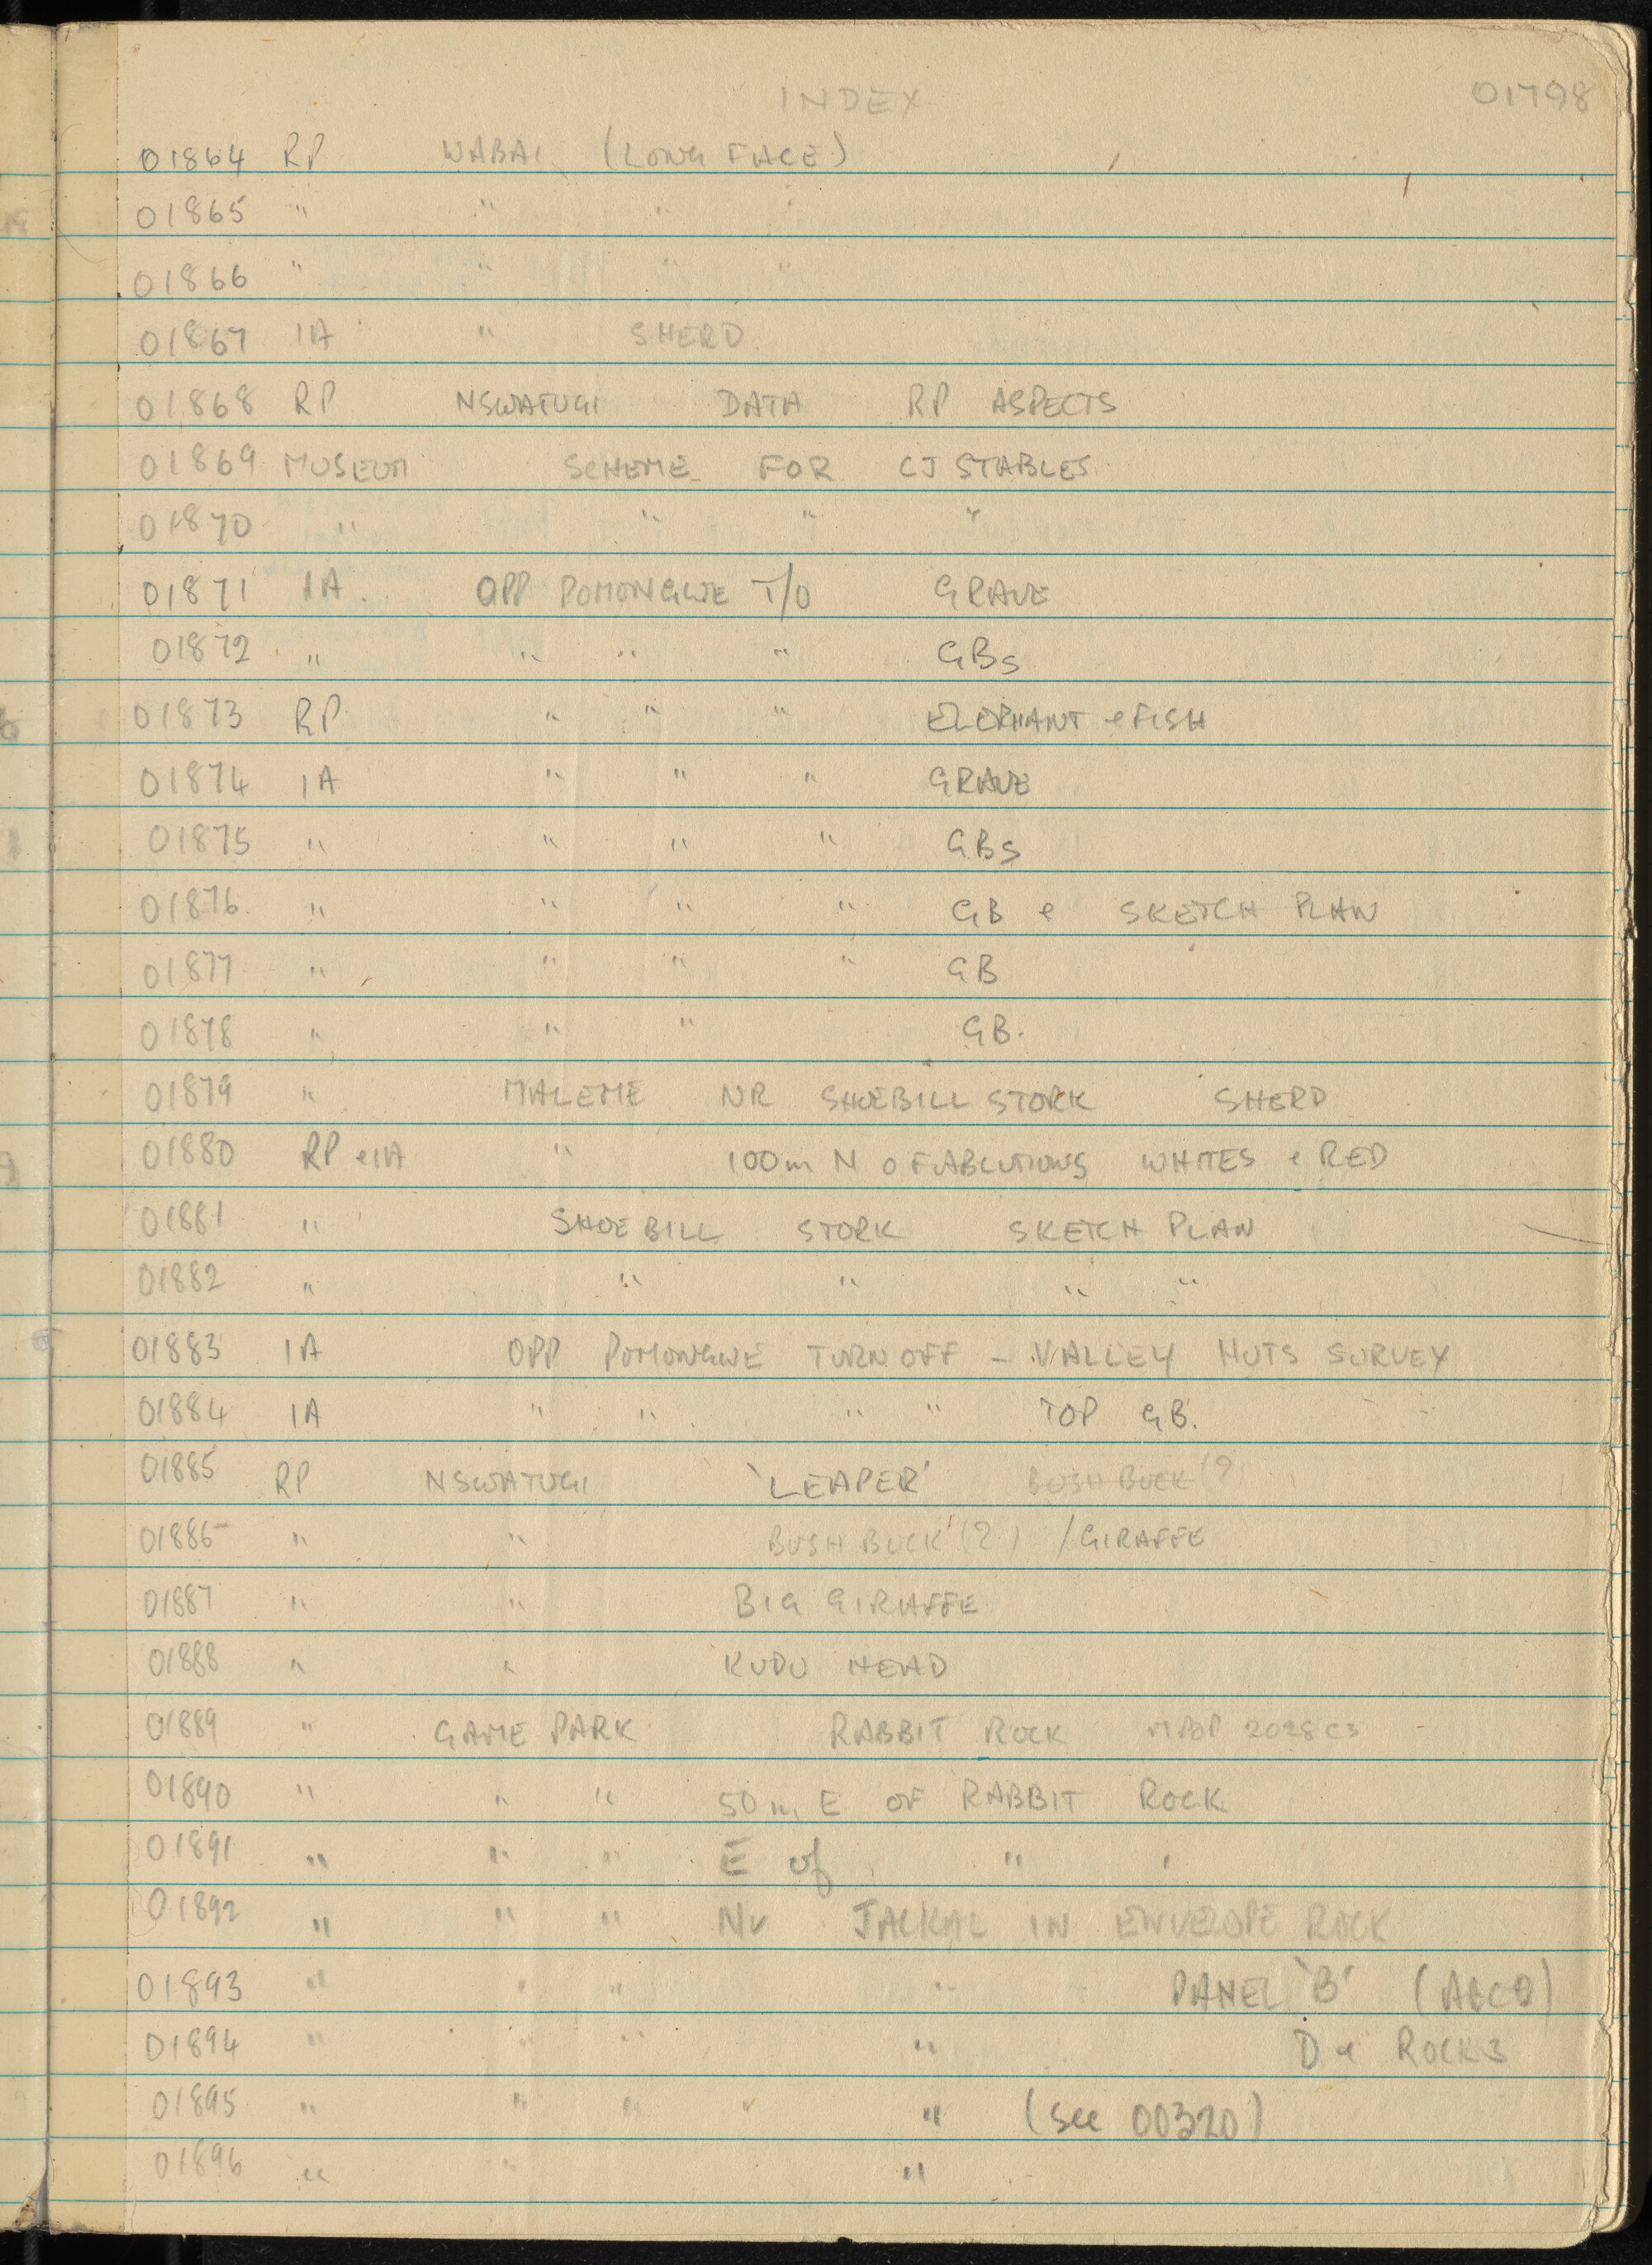 INDEX 01798
01864 RP WABAI (LONG FACE)
01865 " " " "
01866 " " " "
01867 IA " SHERD
01868 RP NSWATUGI DATA RP ASPECTS
01869 MUSEUM SCHEME FOR CJ STABLES
01870 " " " "
01871 IA OPP POMONGWE T/O GRAVE
01872 " " " " GBs
01873 RP " " " ELEPHANT e FISH
01874 IA " " " GRAVE
01875 " " " " GBs
01876 " " " " GB e SKETCH PLAN
01877 " " " " GB
01878 " " " GB.
01879 " MALEME NR SHOEBILL STORK SHERD
01880 RP e IA " 100m N OF ABLUTIONS WHITES e RED
01881 " SHOEBILL STORK SKETCH PLAN
01882 " " " " "
01883 IA OPP POMONGWE TURN OFF - VALLEY HUTS SURVEY
01884 IA " " " " TOP GB.
01885 RP NSWATUGI 'LEAPER' BUSHBUCK (?)
01886 " " BUSHBUCK (?) /GIRAFFE
01887 " " BIG GIRAFFE
01888 " " KUDU HEAD
01889 " GAME PARK RABBIT ROCK 2028C3
01890 " " " 50m E OF RABBIT ROCK
01891 " " " E of " "
01892 " " " Nr JACKAL IN ENVELOPE ROCK
01893 " " " " PANEL 'B' (ABCD)
01894 " " " " D e ROCKS
01895 " " " " " (see 00320)
01896 " " "